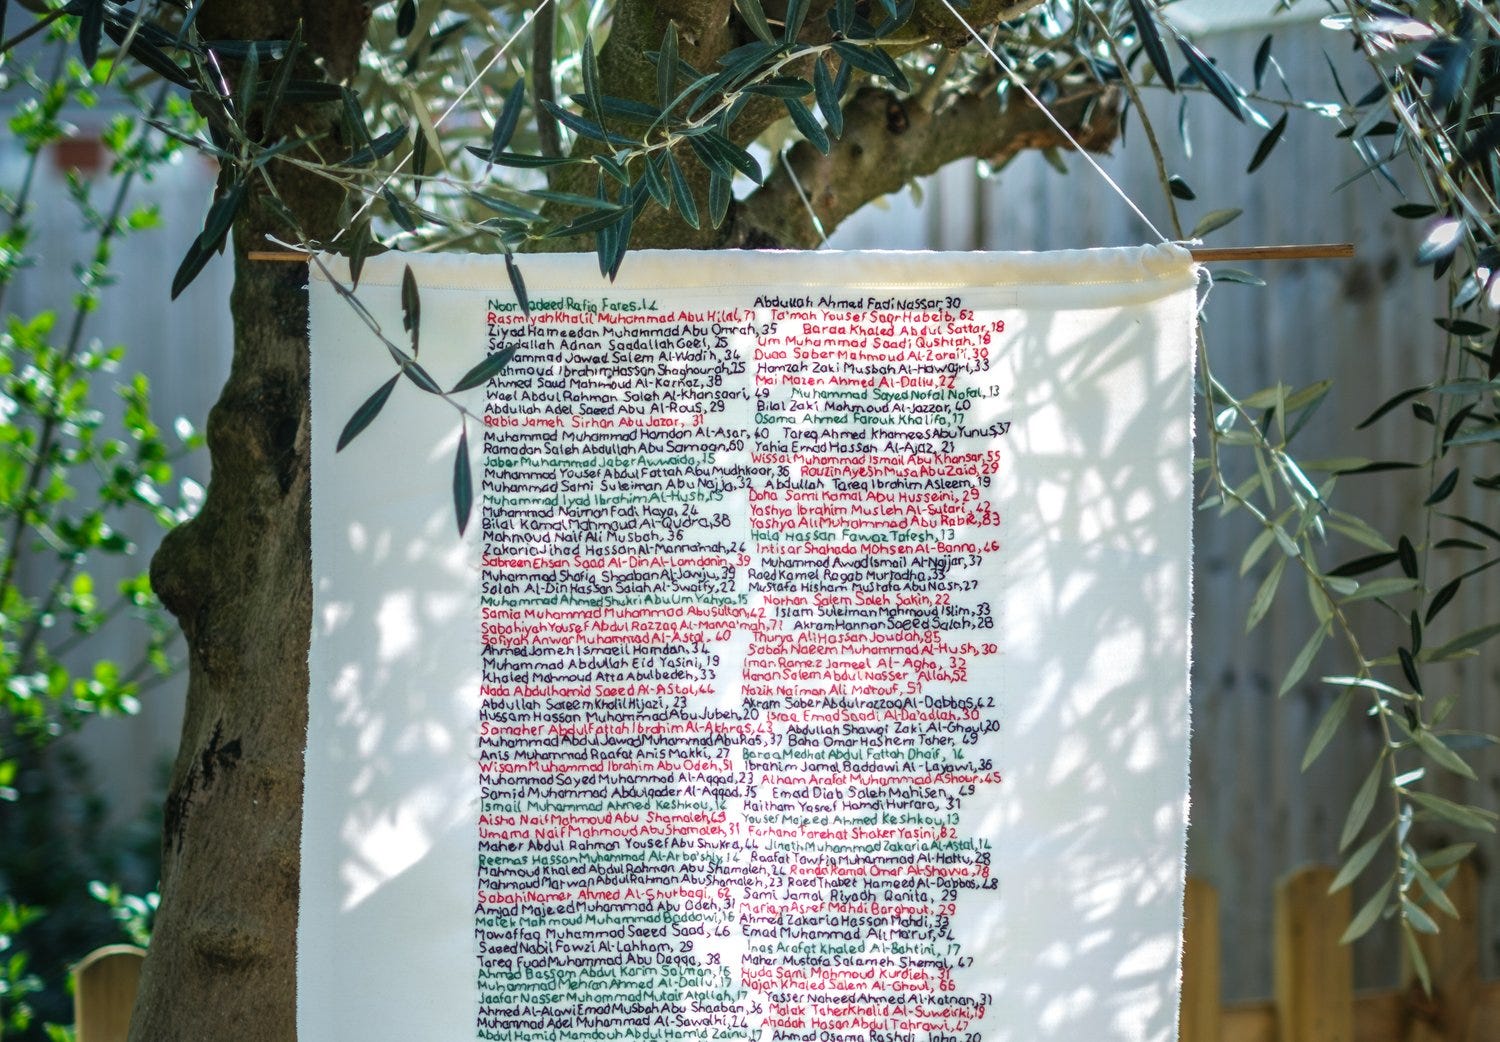 Noor Rafiq Fares,
Abdullah Ahmed Fadi Nassar, 30
Rasmiyah Khalil Muhammad Abu Hilal, 71 Ta'mah Yousef Saqr Habeib, 62
Ziyad Hameedan Muhammad Abu Omrah, 35 Baraa Khaled Abdul Sattar, 18
Saadallah Adnan Saadallah 25 Um Muhammad Saadi Qushtah, 18
Muhammad Jawad Salem Al-Wadih, 34 Duaa Saber Mahmoud Al-Zarai'i, 30
Mahmoud Ibrahim Hassan Shaghourah, 25 Hamzah Zaki Musbah Al-Hawajri, 33
Ahmed Saud Mahmoud Al-Karnaz, 38 Mai Mazen Ahmed Al-Dalu, 22
Wael Abdul Rahman Saleh Al-Khansaari, 49 Muhammad Sayed Nofal Nofal, 13
Abdullah Adel Saeed Abu Al-Rous, 29 Bilal Zaki Mahmoud Al-Jazzar, 40
Rabia Jameh Sirhan Abu Jazar, 31 Osama Ahmed Farouk Khalifa, 17
Muhammad Muhammad Hamdan Al-Asar, 40 Tareq Ahmed Khamees Abu Yunus, 37
Ramadan Saleh Abdullah Abu Samaan, 60 Yahia Emad Hassan Al-Ajaz, 21
Jaber Muhammad Jaber Awwaida, 15 Wissal Muhammad Ismail Abu Khansar, 55
Muhammad Yousef Abdul Fattah Abu Mudhkoor, 36 Rouzin Ayesh Musa Abu Zaid, 29
Muhammad Sami Suleiman Abu Najja, 32 Abdullah Tareq Ibrahim Asleem, 19
Muhammad Iyad Ibrahim Al-Hush, 15 Doha Sami Kamal Abu Husseini, 29
Muhammad Naiman Fadi Haya, 24 Yashya Ibrahim Musleh Al-Sutari, 42
Bilal Kamal Mahmoud Al-Qudra, 38 Yashya Ali Muhammad Abu Rabie, 83
Mahmoud Naif Ali Musbah, 36 Hala Hassan Fawaz Tafesh, 13
Zakaria Jihad Hassan Al-Manna'mah, 26 Intisar Shahada Mohsen Al-Banna, 46
Sabreen Ehsan Saad Al-Din Al-Lamdanin, 39 Muhammad Awad Ismail Al-Najjar, 37
Muhammad Shafiq Shaaban Al-Jawju, 39 Raed Kamel Ragab Murtadha, 33
Salah Al-Din Hassan Salah Al-Swaify, 22 Mustafa Hisham Mustafa Abu Nasr, 27
Muhammad Ahmed Shukri Abu Um Yahya, 15 Norhan Salem Saleh Sakin, 22
Samia Muhammad Muhammad Abu Sultan, 42 Islam Suleiman Mahmoud Islim, 33
Sabahiyah Yousef Abdul Razzaq Al-Manna'mah, 71 Akram Hannon Saeed Salah, 28
Safiyah Anwar Muhammad Al-Astal, 40 Thurya Ali Hassan Joudah, 85
Ahmed Jameh Ismaeil Hamdan, 34 Sabah Naeem Muhammad Al-Hush, 30
Muhammad Abdullah Eid Yasini, 19 Iman Ramez Jameel Al-Agha, 32
Khaled Mahmoud Atta Abulbedeh, 33 Hanan Salem Abdul Nasser Allah, 52
Nada Abdulhamid Saeed Al-Astal, 44 Nazik Naiman Ali Marouf, 51
Abdullah Sareem Khalil Hijazi, 23 Akram Saber Abdulrazzaq Al-Dabbas, 42
Hussam Hassan Muhammad Abu Jubeh, 20 Israa Emad Saadi Al-Da'adlah, 30
Samaher Abdul Fattah Ibrahim Al-Akhras, 43 Abdullah Shawqi Zaki Al-Ghoul, 20
Muhammad Abdul Jawad Muhammad Abu Ras, 37 Baha Omar Hashem Taher, 49
Anis Muhammad Raafat Anis Makki, 27 Baraa Medhat Abdul Fattah Dhair, 16
Wisam Muhammad Ibrahim Abu Odeh, 51 Ibrahim Jamal Baddawi Al-Layawi, 36
Muhammad Sayed Muhammad Al-Aqqad, 23 Alham Arafat Muhammad Ashour, 45
Samid Muhammad Abdulqader Al-Aqqad, 35 Emad Diab Saleh Mahisen, 49
Ismail Muhammad Ahmed Keshkou, Haitham Yasref Hamdi Hurrara, 31
Aisha Naif Mahmoud Abu Shamaleh, 49 Yousef Majeed Ahmed Keshkou, 13
Umama Naif Mahmoud Abu Shamaleh, 31 Farhana Farehat Shaker Yasini, 82
Maher Abdul Rahman Yousef Abu Shukra, 44 Jinath Muhammad Zakaria Al-Astal, 14
Reemas Hassan Muhammad Al-Arba'shly, 14 Raafat Tawfiq Muhammad Al-Hattu, 28
Mahmoud Khaled Abdul Rahman Abu Shamaleh, 24 Randa Ramal Omar Al-Shawa, 78
Mahmoud Marwan Abdul Rahman Abu Shamaleh, 23 Raed Thabet Hameed Al-Dabbas, 48
Sabahi Namer Ahmed Al-Shurbagi, 62 Sami Jamal Riyadh Qanita, 29
Amjad Majeed Muhammad Abu Odeh, 31 Mariam Asref Mahdi Barghout, 29
Malek Mahmoud Muhammad Baddawi, 16 Ahmed Zakaria Hassan Mahdi, 33
Mowaffaq Muhammad Saeed Saad, 46 Emad Muhammad Ali Ma'ruf, 54
Saeed Nabil Fawzi Al-Lahham, 29 Inas Arafat Khaled Al-Bahtini, 17
Tareq Fuad Muhammad Abu Daqqa, 38 Maher Mustafa Salameh Shemal, 47
Ahmad Bassam Abdul Karim Salman, 16 Huda Sami Mahmoud Kurdieh, 31
Muhammad Mehran Ahmed Al-Dallu, 17 Najah Khaled Salem Al-Ghoul, 66
Jaafar Nasser Muhammad Mutair Atallah, 17 Yasser Naheed Ahmed Al-Katnan, 31
Ahmed Al-Alawi Emad Musbah Abu Shaaban, 36 Malak Taher Khalid Al-Suweirki, 19
Muhammad Adel Muhammad Al-Sawalhi, 24 Ahadah Hasan Abdul Tahrawi, 47
Abdul Hamid Mamdouh Abdul Hamid Zainu, 17 Ahmad Osama Rashdi 20